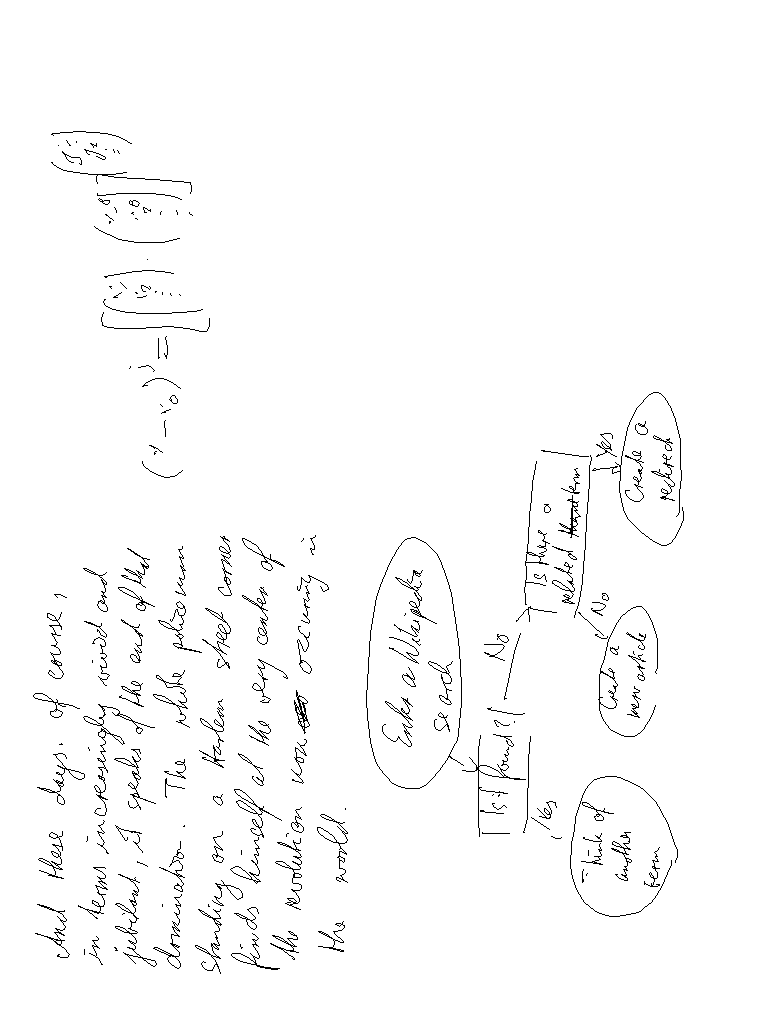 And these days, of course,
in terms increasingly vivid and
jubilant, it speaks of the end of that
domination. The white policeman
standing on a Harlem street corner
finds himself at the very center of
the revolution now occurring in
the world.
Enter a Wikipedia
search
Is it found?
No
Yes
Think of
another
term
Is there a
related term
No
Yes
Create a
new article
Create a
redirect